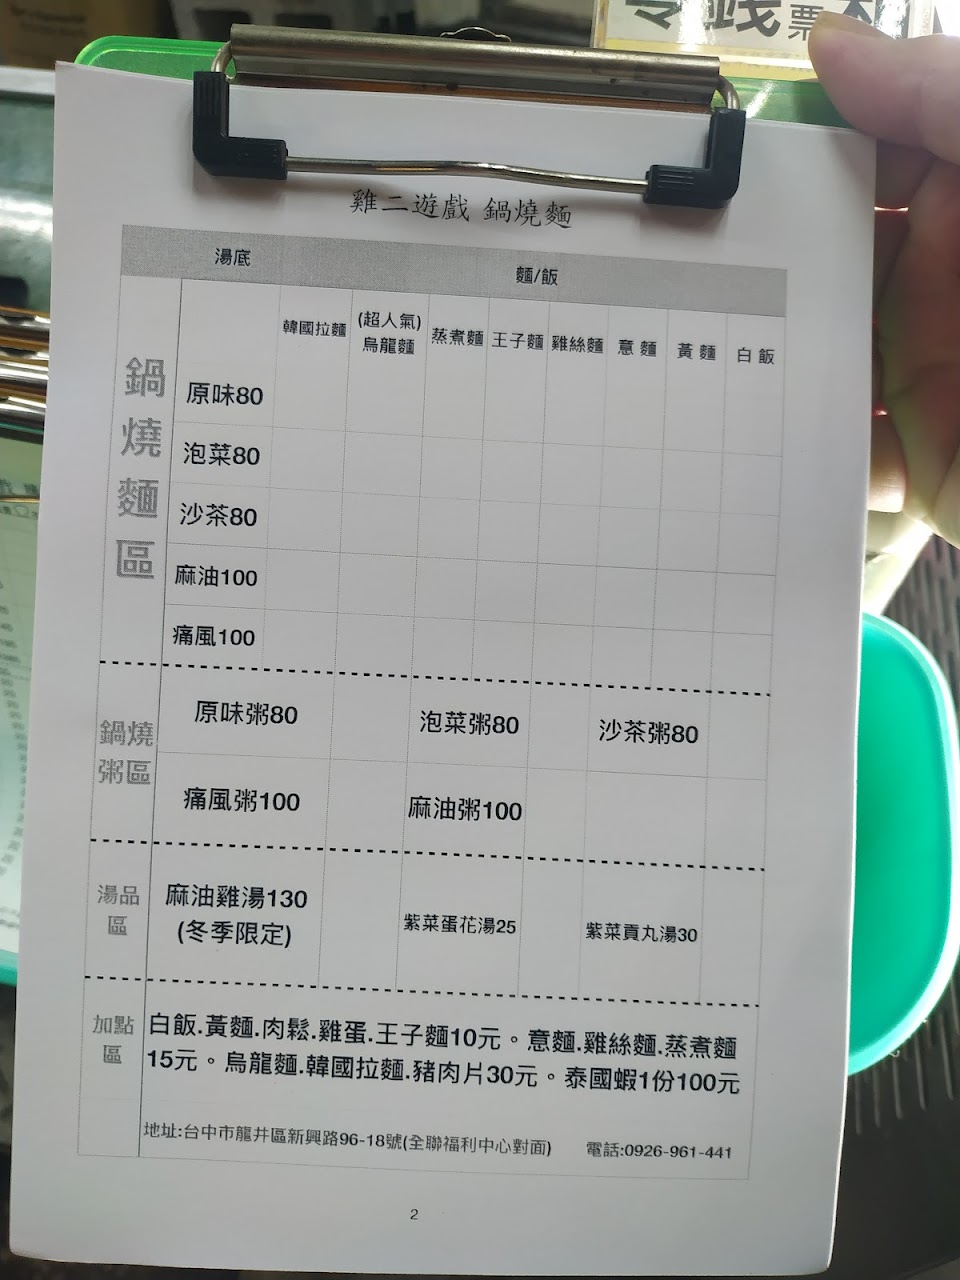 雞二遊戲 鍋燒麵
湯底 麵/飯
韓國拉麵 (超人氣)烏龍麵 蒸煮麵 王子麵 雞絲麵 意 麵 黃 麵 白 飯
鍋燒麵區
原味80
泡菜80
沙茶80
麻油100
痛風100
鍋燒粥區
原味粥80 泡菜粥80 沙茶粥80
痛風粥100 麻油粥100
湯品區
麻油雞湯130 紫菜蛋花湯25 紫菜貢丸湯30
(冬季限定)
加點區
白飯.黃麵.肉鬆.雞蛋.王子麵10元。意麵.雞絲麵.蒸煮麵
15元。烏龍麵.韓國拉麵.豬肉片30元。泰國蝦1份100元
地址:台中市龍井區新興路96-18號(全聯福利中心對面) 電話:0926-961-441
2